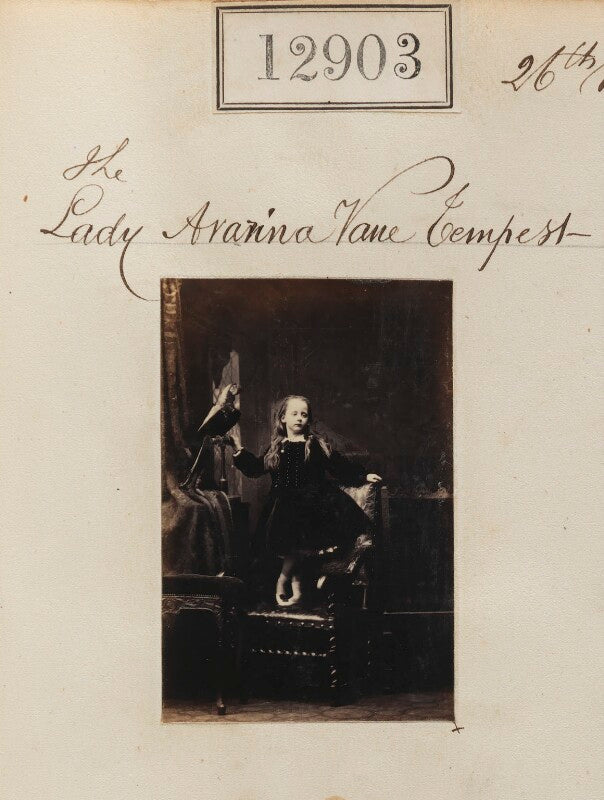 12903
26th
The
Lady Avarina Vane Tempest